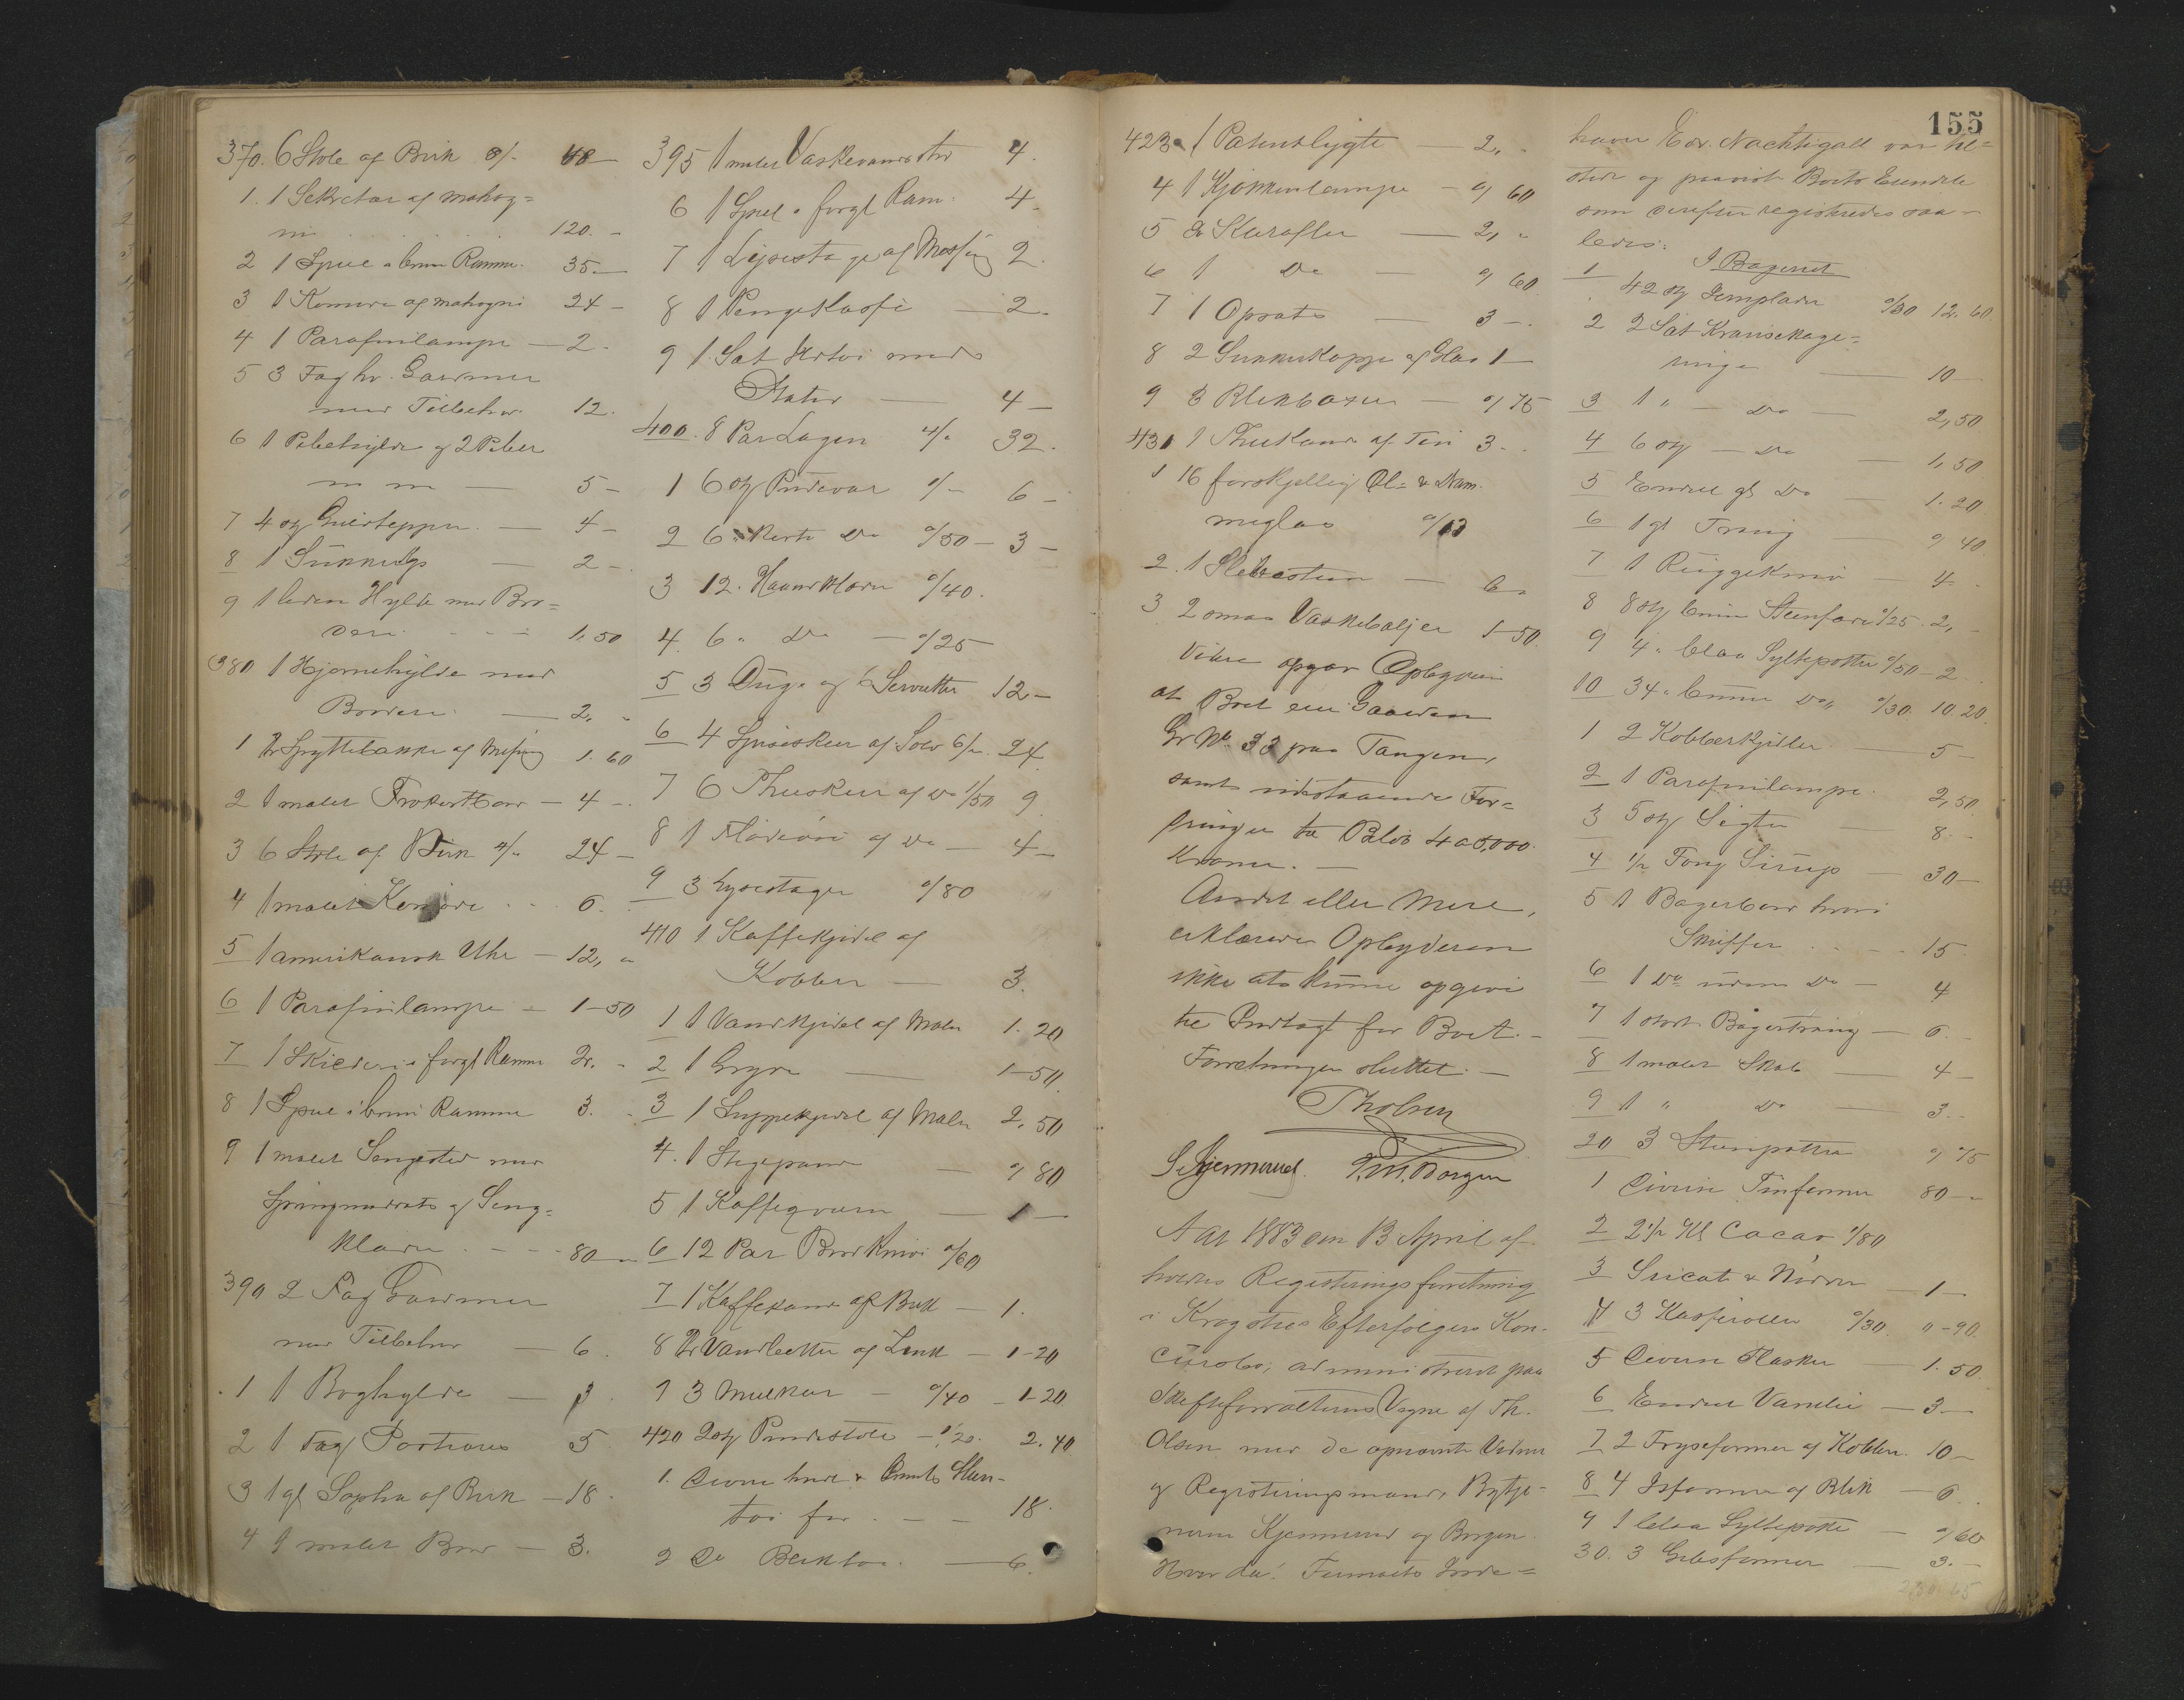 370. 6 Stole af Birk 8/- 48
1. 1 Sekretær af mahog=
ni 120. -
2 1 Speil i brun Ramme. 35.
3 1 Komode af mahogni 24 -
4 1 Parafinlampe - 2 -
5 3 Fag hv. Gardiner
med Tilbehør 12.
6 1 Pibehylde og 2 Piber
5 -
7 4 st Gulvtepper. - 4 -
8 1 2 -
9 1 liden Hylde med Bro=
deri 1,50
380 1 Hjørnehylde med
Broderi. - 2, "
1 2 Spyttebakker af Messing 1.60
2 1 malet Frokostbord - 4 -
3 6 Stole af Birk 4/- 24 -
4 1 malet Komode 6.
5 1 amerikansk Uhr - 12, "
6 1 Parafinlampe - 1-50
7 1 Skilderi i forgl Ramme 2. -
8 1 Speil i brun Ramme 3. -
9 1 malet Sengested med
Springmadrats og Seng=
klæder 80 -
390 2 Fag Gardiner
med Tilbehør - 6.
1 1 Boghylde - 3
2 1 Fag Portierer 5
3 1 gl Sopha af Birk - 18.
4 1 malet Bord - 3.
395 1 malet Vaskevandsstol 4.
6 1 Speil i forgl Ram. 4.
7 1 Lysestage af Messing 2.
8 1 Pengekasse - 2.
9 1 Sæt Ildtøi med
Stativ - 4 -
400. 8 Par Lagen 4/- 32.
1 6 st Pudevar 1/- 6 -
2 6 " korte Do 0/50 - 3 -
3 12. Haandklæder 0/40.
4. 6 " Do - 0/25
5 3 Duge og 6 Servietter 12 -
6 4 Spiseskeer af Sølv 6/- 24
7 6 Theskeer af do 1/50 9
8 1 Flødeøse af do - 4 -
9 3 Lysestager 0/80
410 1 Kaffekjedel af
Kobber - 3.
1 1 Vandkjedel af Malm 1.20
2 1 Gryde - 1-50
3 1 Suppekjedel af Malm 2,50
4. 1 Stegepande - 0/80
5 1 Kaffeqværn - 1 -
6 12 Par Bordknive 0/60
7 1 Kaffekande af Blik - 1.
8 2 Vandbøtter af Zink - 1-20
9 3 Melkekar - 0/40 - 1-20
420 2 st Pindestole - 1/20. 2.40
1. Diverse hvidt & brunt Sten-
tøi for - - 18.
2 Do Bliktøi. - 6.
423 1 Patentlygte - 2, -
4 1 Kjøkkenlampe - 0/60
5 2 Karafler - 2, "
6 1 Do - 0/60
7 1 Opsats - 3 -.
8 2 Sukkerkopper af Glas 1 -
9 3 Blikbøsser - 0/75
430 1 Thekande af Tin 3 -
1 16 forskjellige Øl- & Dram.
meglas 0/13
2. 1 Slibesten - 6 "
3 2 smaa Vaskebaljer 1-50
Videre opgav Opbyderen
at Boet eier Gaarden
Gr No 33 paa Tangen,
samt udestaaende For=
dringer til Beløb 400,000
Kroner. -
Andet eller Mere,
erklærede Opbyderen
ikke at kunne opgive
til Indtægt for Boet. -
Forretningen sluttet. -
Th Olsen
S. Kjemmerud. P. M. Borgen
Aar 1883 den 13 April af-
holdtes Registreringsforretning
i Krogsties Efterfølgers Kon-
cursbo, administreret paa
Skifteforvalterens Vegne af Th.
Olsen med de opnævnte Vidner
og Registreringsmænd, Bytje-
nerne Kjemmerud og Borgen.
Hvor da: Firmaets Inde=
155
haver Edv. Nachtigall var til=
stede og paaviste Boets Eiendele
som derefter registreredes saa-
ledes:
I Bageriet
1 42 st Jernplader 0/30 12.60
2 2 Sæt Kransekage=
ringe - 10 -
3 1 " - Do - 2,50
4 6 st - Do - 1,50
5 Endel gl Do - 1.20
6 1 gl Traug - 0/40
7 1 - 4 -
8 8 st brune Steenfade 0/25. 2, -
9 4 " blaa Syltepotter 0/50 - 2.
10 34 " brune Do " 0/30. 10.20.
1 2 Kobberkjedler - 5 -
2 1 Parafinlampe 2,50
3 5 st Sigter - 8 -
4 1/2 Tønde Sirup - 30 -
5 1 Bagerbord hvori
Skuffer - 15.
6 1 Do uden Do - 4
7 1 stort Bagertraug - 6 -
8 1 malet Skab - 4 -
9 1 " Do - 3 -
20 3 Steenpotter 0/75
1 Diverse Tinformer 80 -
2 2 1/2 Kl Cacao 1/80
3 Sucat & Nødder - 1 -
4 3 Kasseroller 0/30 " - 90.
5 Diverse Flasker - 1.50
6 Endel Vanille - 3 -
7 2 Fryseformer af Kobber. 10 -
8 4 Isformer af Blik - 6.
9 1 blaa Syltepotte - 0/60
30. 3 Gibsformer - 3. -